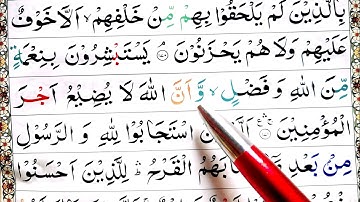 بِالَّذِيْنَ لَمْ يَلْحَقُوْا بِهِمْ مِّنْ خَلْفِهِمْ ۙ اَلَّا خَوْفٌ
عَلَيْهِمْ وَلَا هُمْ يَحْزَنُوْنَ ۘ يَسْتَبْشِرُوْنَ بِنِعْمَةٍ
مِّنَ اللّٰهِ وَ فَضْلٍ ۙ وَّ اَنَّ اللّٰهَ لَا يُضِيْعُ اَجْرَ
الْمُؤْمِنِيْنَ ۛ اسْتَجَابُوْا لِلّٰهِ وَ الرَّسُوْلِ
مِنْ بَعْدِ الْقَرْحُ ۛ لِلَّذِيْنَ اَحْسَنُوْا